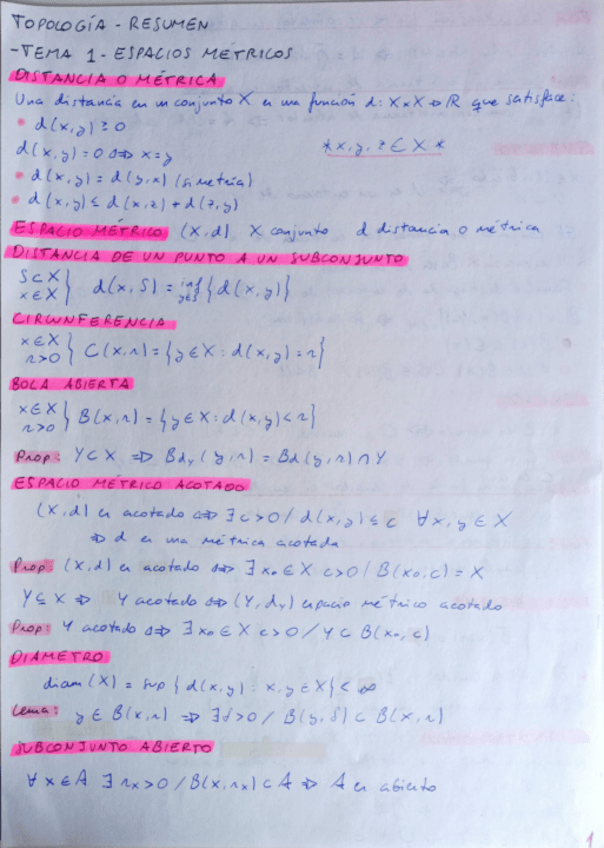 TOPOLOGÍA - RESUMEN
- TEMA 1 - ESPACIOS MÉTRICOS
DISTANCIA O MÉTRICA
Una distancia en un conjunto X es una función d: X×X → R que satisface:
• d(x,y) ≥ 0
d(x,y) = 0 ⇔ x=y *x,y,z ∈ X*
• d(x,y) = d(y,x) (simetría)
• d(x,y) ≤ d(x,z) + d(z,y)
ESPACIO MÉTRICO (X,d) X conjunto d distancia o métrica
DISTANCIA DE UN PUNTO A UN SUBCONJUNTO
S⊂X
x∈X } d(x,S) = inf y∈S {d(x,y)}
CIRCUNFERENCIA
x∈X
r>0 } C(x,r) = {y∈X : d(x,y) = r}
BOLA ABIERTA
x∈X
r>0 } B(x,r) = {y∈X : d(x,y) < r}
Prop: Y⊂X ⇒ Bdᵧ(y,r) = Bd(y,r) ∩ Y
ESPACIO MÉTRICO ACOTADO
(X,d) es acotado ⇔ ∃c>0 / d(x,y) ≤ c ∀x,y ∈ X
⇒ d es una métrica acotada
Prop: (X,d) es acotado ⇔ ∃x₀∈X c>0 / B(x₀,c) = X
Y⊆X ⇒ Y acotado ⇔ (Y,dᵧ) espacio métrico acotado
Prop: Y acotado ⇔ ∃x₀∈X c>0 / Y⊂B(x₀,c)
DIAMETRO
diam(X) = sup {d(x,y) : x,y∈X} < ∞
Lema: y∈B(x,r) ⇒ ∃δ>0 / B(y,δ) ⊂ B(x,r)
SUBCONJUNTO ABIERTO
∀x∈A ∃rₓ>0 / B(x,rₓ) ⊂ A ⇒ A es abierto
1